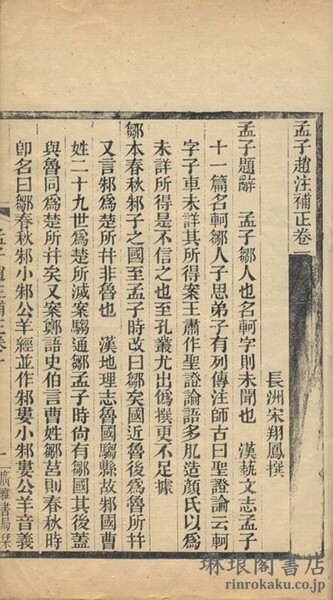 孟子趙注補正卷一
長洲宋翔鳳撰
孟子題辭　孟子鄒人也名軻字則未聞也　漢蓺文志孟子
十一篇名軻鄒人子思弟子有列傳注師古曰聖證論云軻
字子車未詳其所得案王肅作聖證論語多肊造顏氏以爲
未詳所得是不信之也至孔叢尤出僞撰更不足據
鄒本春秋邾子之國至孟子時改曰鄒矣國近魯後爲魯所并
又言邾爲楚所并非魯也　漢地理志魯國騶縣故邾國曹
姓二十九世爲楚所滅案騶通鄒孟子時尙有鄒國其後蓋
與魯同爲楚所并矣又案鄭語史伯言曹姓鄒莒則春秋時
卽名曰鄒春秋邾小邾公羊經並作邾婁小邾婁公羊音義
孟子趙注補正卷一
一
廣雅書局栞
琳琅閣書店
rinrokaku.co.jp